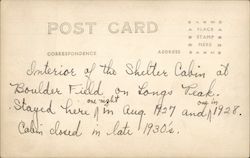 POST CARD
PLACE
STAMP
HERE
CORRESPONDENCE ADDRESS
Interior of the Shelter Cabin at
Boulder Field on Longs Peak.
one night one in
Stayed here in Aug. 1927 and 1928.
Cabin closed in late 1930's.